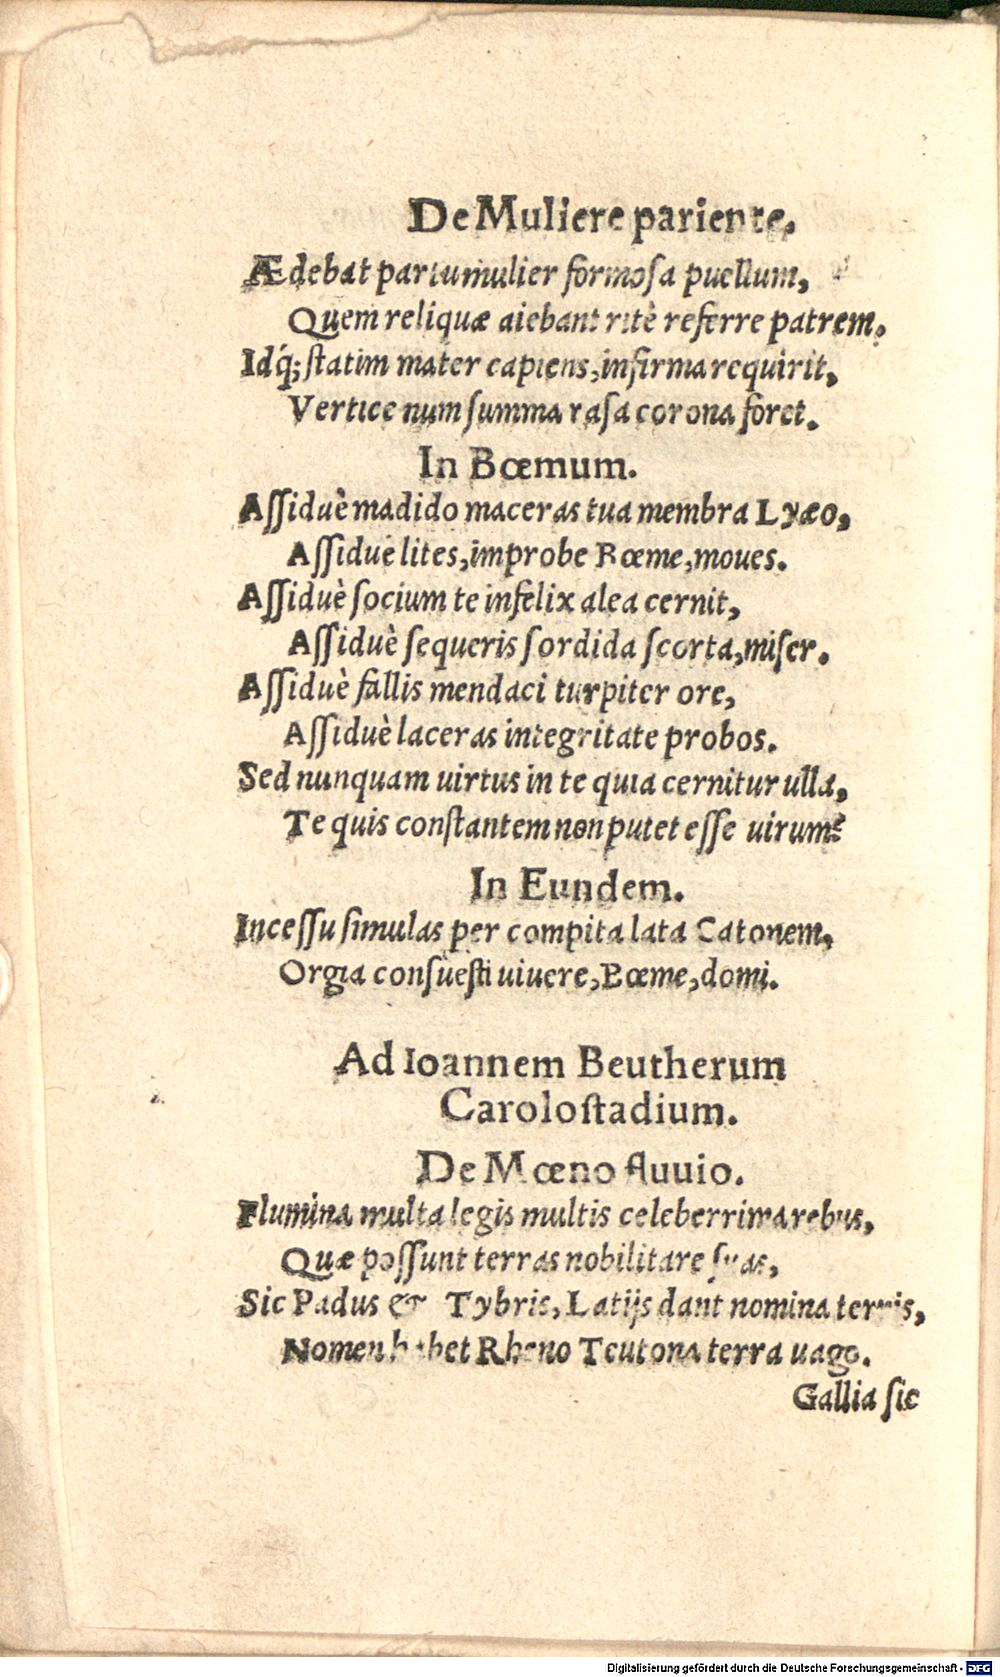 De Muliere pariente.
Ædebat partu mulier formosa puellum,
Quem reliquæ aiebant ritè referre patrem.
Idq́; statim mater capiens, infirma requirit,
Vertice num summa rasa corona foret.
In Bœmum.
Assiduè madido maceras tua membra Lyæo,
Assiduè lites, improbe Bœme, moues.
Assiduè socium te infelix alea cernit,
Assiduè sequeris sordida scorta, miser.
Assiduè fallis mendaci turpiter ore,
Assiduè laceras integritate probos.
Sed nunquam uirtus in te quia cernitur ulla,
Te quis constantem non putet esse uirum?
In Eundem.
Incessu simulas per compita lata Catonem,
Orgia consuesti uiuere, Bœme, domi.
Ad Ioannem Beutherum
Carolostadium.
De Mœno fluuio.
Flumina multa legis multis celeberrima rebus,
Quæ possunt terras nobilitare suas,
Sic Padus & Tybris, Latijs dant nomina terris,
Nomen habet Rheno Teutona terra uago.
Gallia sic
Digitalisierung gefördert durch die Deutsche Forschungsgemeinschaft - DFG